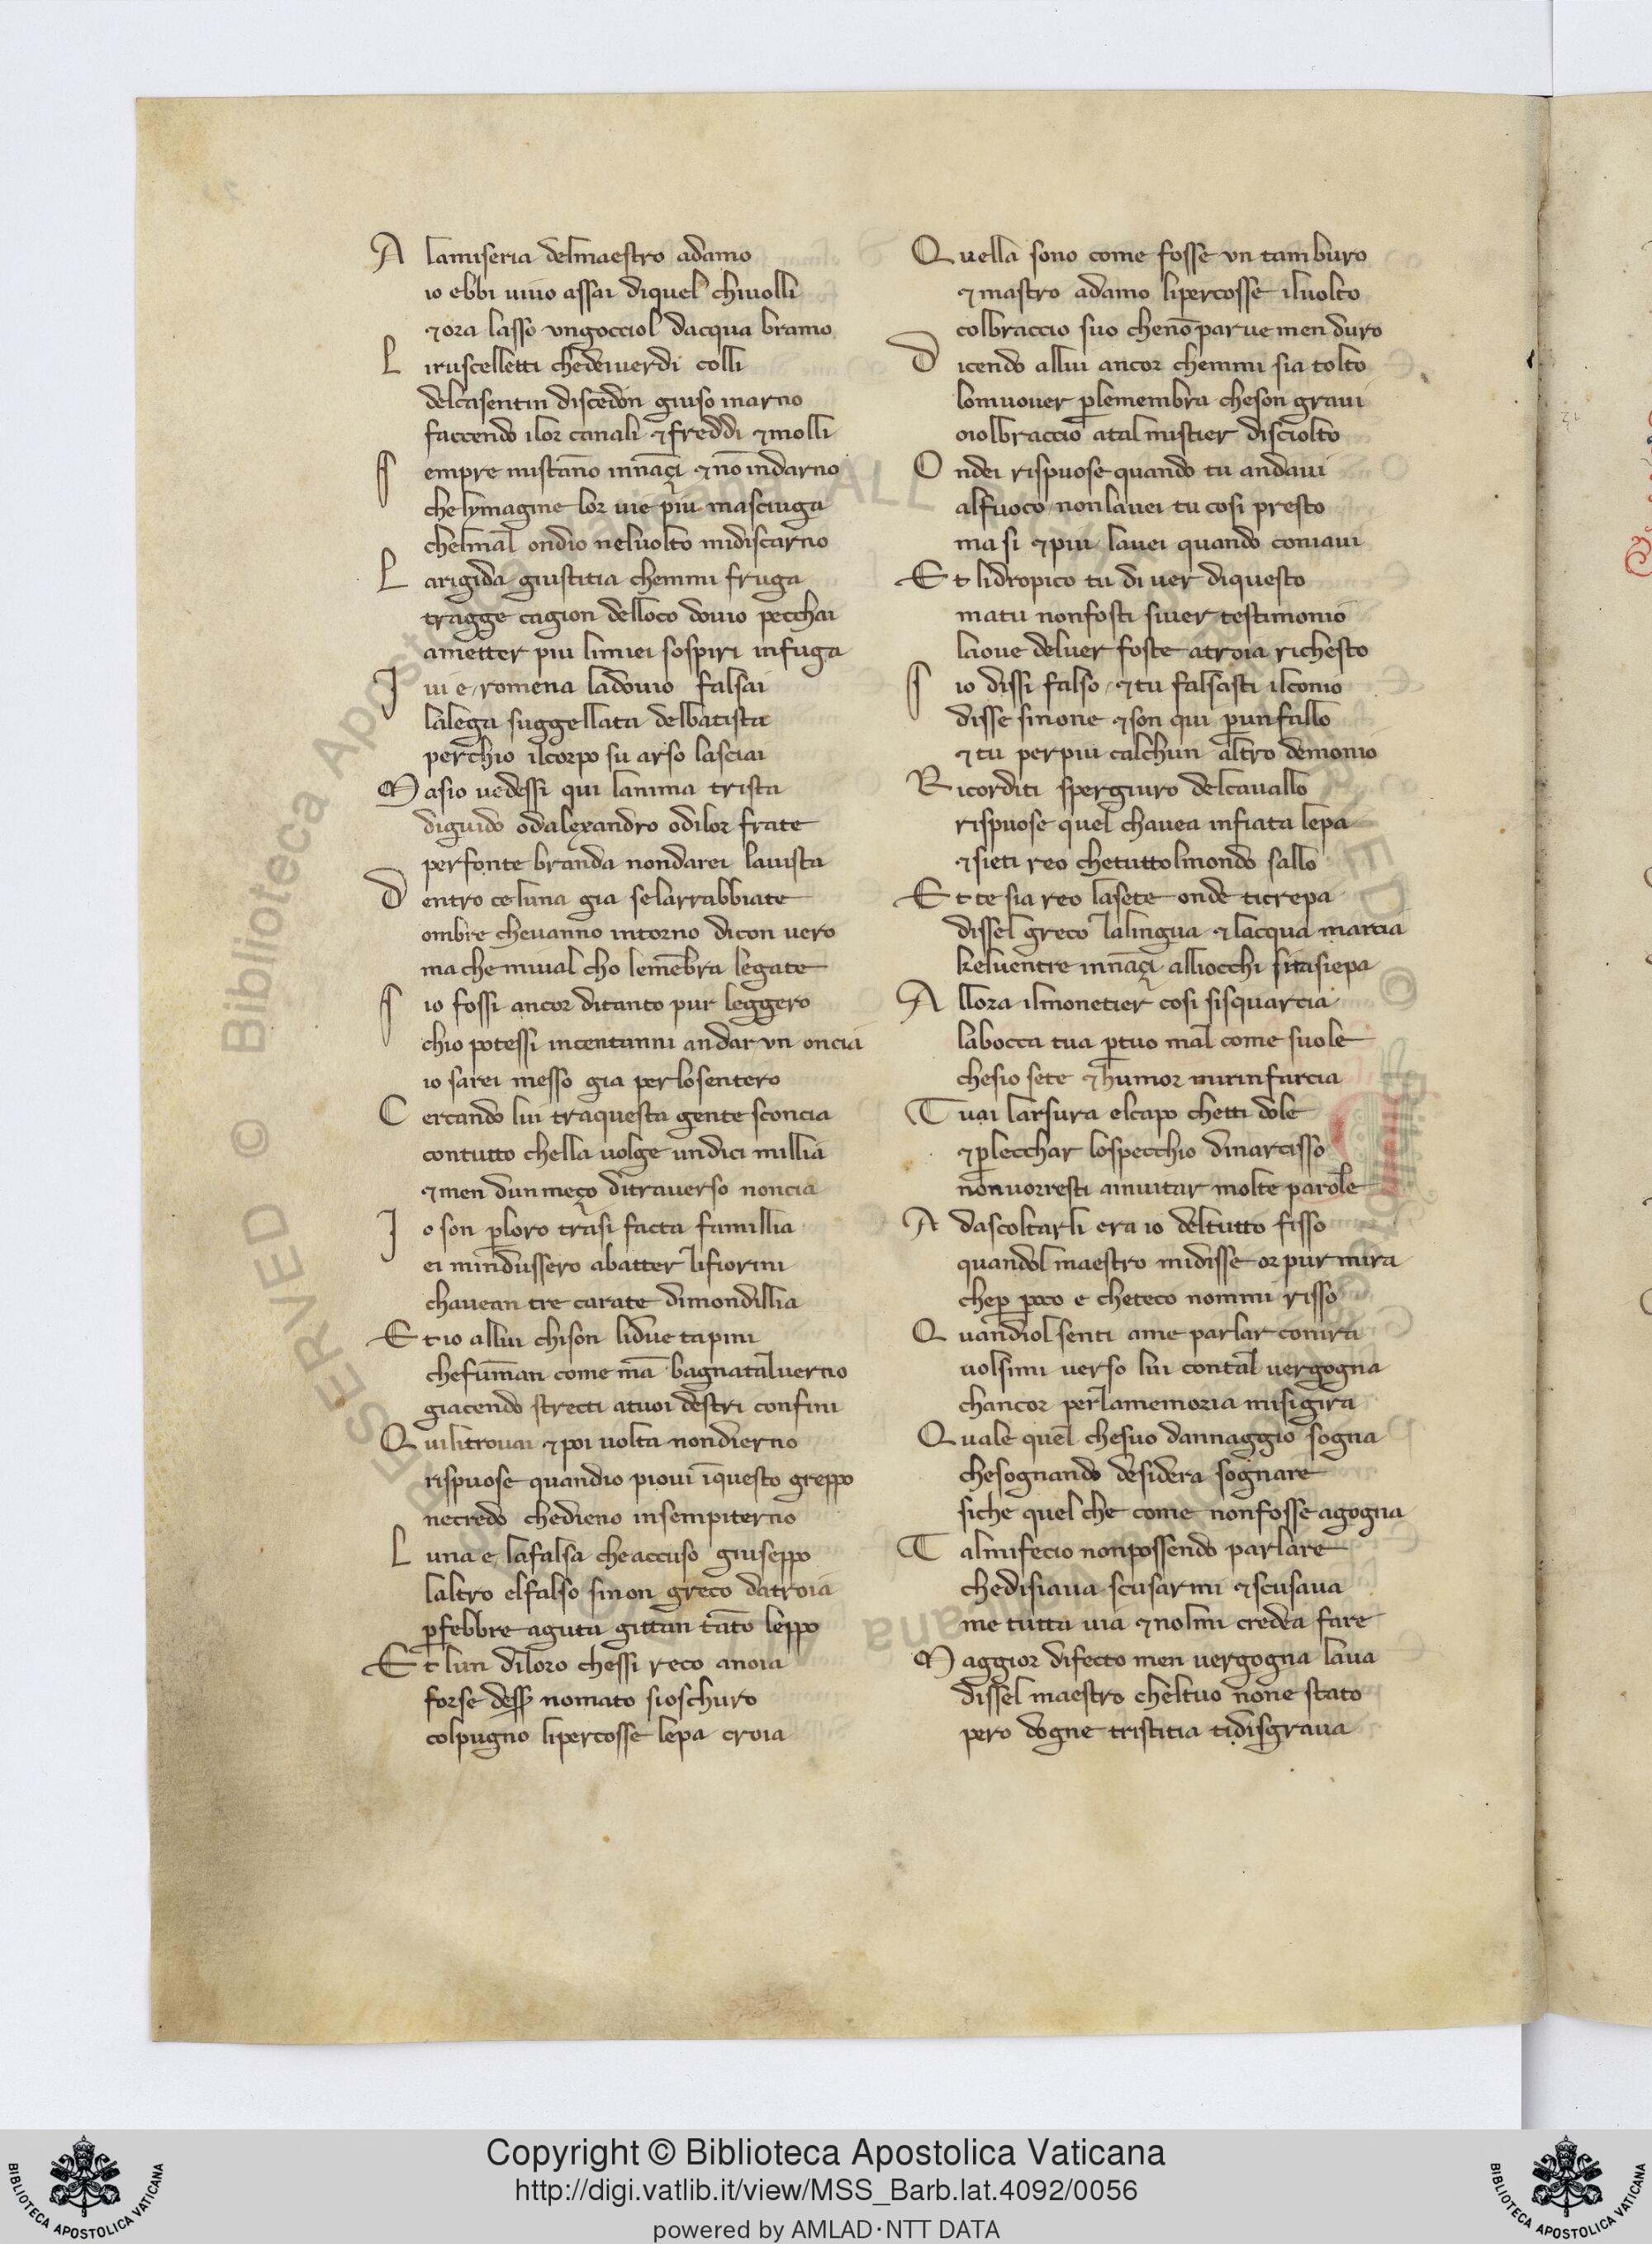 A lamiseria delmaestro adamo
io ebbi uiuo assai diquel chiuolli
⁊ora lasso ungocciol dacqua bramo
L iruscelletti chedeiuerdi colli
delcasentin discedon giuso inarno
faccendo ilor canali ⁊freddi ⁊molli
S empre mistāno innāçi ⁊nō indarno
chelymagine lor uie piu masciuga
chelmal ondio neluolto midiscarno
L arigida giustitia chemmi fruga
tragge cagion delloco douio pecchai
ametter piu limiei sospiri infuga
I ui e romena ladouio falsai
lalega suggellata delbatista
perchio ilcorpo su arso lasciai
M asio uedessi qui lanima trista
diguido odalexandro odilor frate
perfonte branda nondarei lauista
D entro celuna gia selarrabbiate
ombre cheuanno intorno dicon uero
ma che miual cho lemēbra legate
S io fossi ancor ditanto pur leggero
chio potessi incentanni andar un oncia
io sarei messo gia perlosentero
C ercando lui traquesta gente sconcia
contutto chella uolge undici millia
⁊men dunmeço ditrauerso noncia
I o son ꝑloro trasi facta famillia
ei mindussero abatter lifiorini
chauean tre carate dimondillia
E t io allui chison lidue tapini
chefūman come mā bagnataluerno
giacendo strecti atuoi destri confini
Q uilitrouai ⁊poi uolta nondierno
rispuose quandio pioui īquesto greppo
necredo chedieno insempiterno
L una e lafalsa cheaccuso giuseppo
laltro elfalso sinon greco datroia
ꝑfebbre aguta gittan tāto leppo
E t lun diloro chessi reco anoia
forse dess̄ nomato sioschuro
colpugno lipercosse lepa croia
Q uella sono come fosse un tamburo
⁊mastro adamo lipercosse iluolto
colbraccio suo chenō parue men duro
D icendo allui ancor chemmi sia tolto
lomuouer ꝑlemembra cheson graui
oiolbraccio atal mistier disciolto
O ndei rispuose quando tu andaui
alfuoco nonlauei tu cosi presto
ma si ⁊piu lauei quando coniaui
E t lidropico tu di uer diquesto
matu nonfosti siuer testimonio
laoue deluer foste atroia richesto
S io dissi falso ⁊tu falsasti ilconio
disse sinone ⁊son qui ꝑunfallo
⁊tu perpiu calchun altro demonio
R icorditi spergiuro delcauallo
rispuose quel chauea infiata lepa
⁊sieti reo chetuttolmondo sallo
E t te sia reo lasete onde ticrepa
dissel greco lalingua ⁊lacqua marcia
keluentre innāçi alliocchi sitasiepa
A llora ilmonetier cosi sisquarcia
labocca tua ꝑtuo mal come suole
chesio sete ⁊humor mirinfarcia
T uai larsura elcapo chetti dole
⁊ꝑlecchar lospecchio dinarcisso
nonuorresti ainuitar molte parole
A dascoltarli era io deltutto fisso
quandol maestro midisse or pur mira
cheꝑ poco e cheteco nommi risso
Q uandiol senti ame parlar conira
uolsimi uerso lui contal uergogna
chancor perlamemoria misigira
Q uale quel chesuo dannaggio sogna
chesognando desidera sognare
siche quel che come nonfosse agogna
T almifecio nonpossendo parlare
chedisiaua scusarmi ⁊scusaua
me tutta uia ⁊nolmi credea fare
M aggior difecto men uergogna laua
dissel maestro cheltuo none stato
pero dogne tristitia tidisgraua
Copyright © Biblioteca Apostolica Vaticana
http://digi.vatlib.it/view/MSS_Barb.lat.4092/0056
powered by AMLAD·NTT DATA
BIBLIOTECA APOSTOLICA VATICANA
BIBLIOTECA APOSTOLICA VATICANA